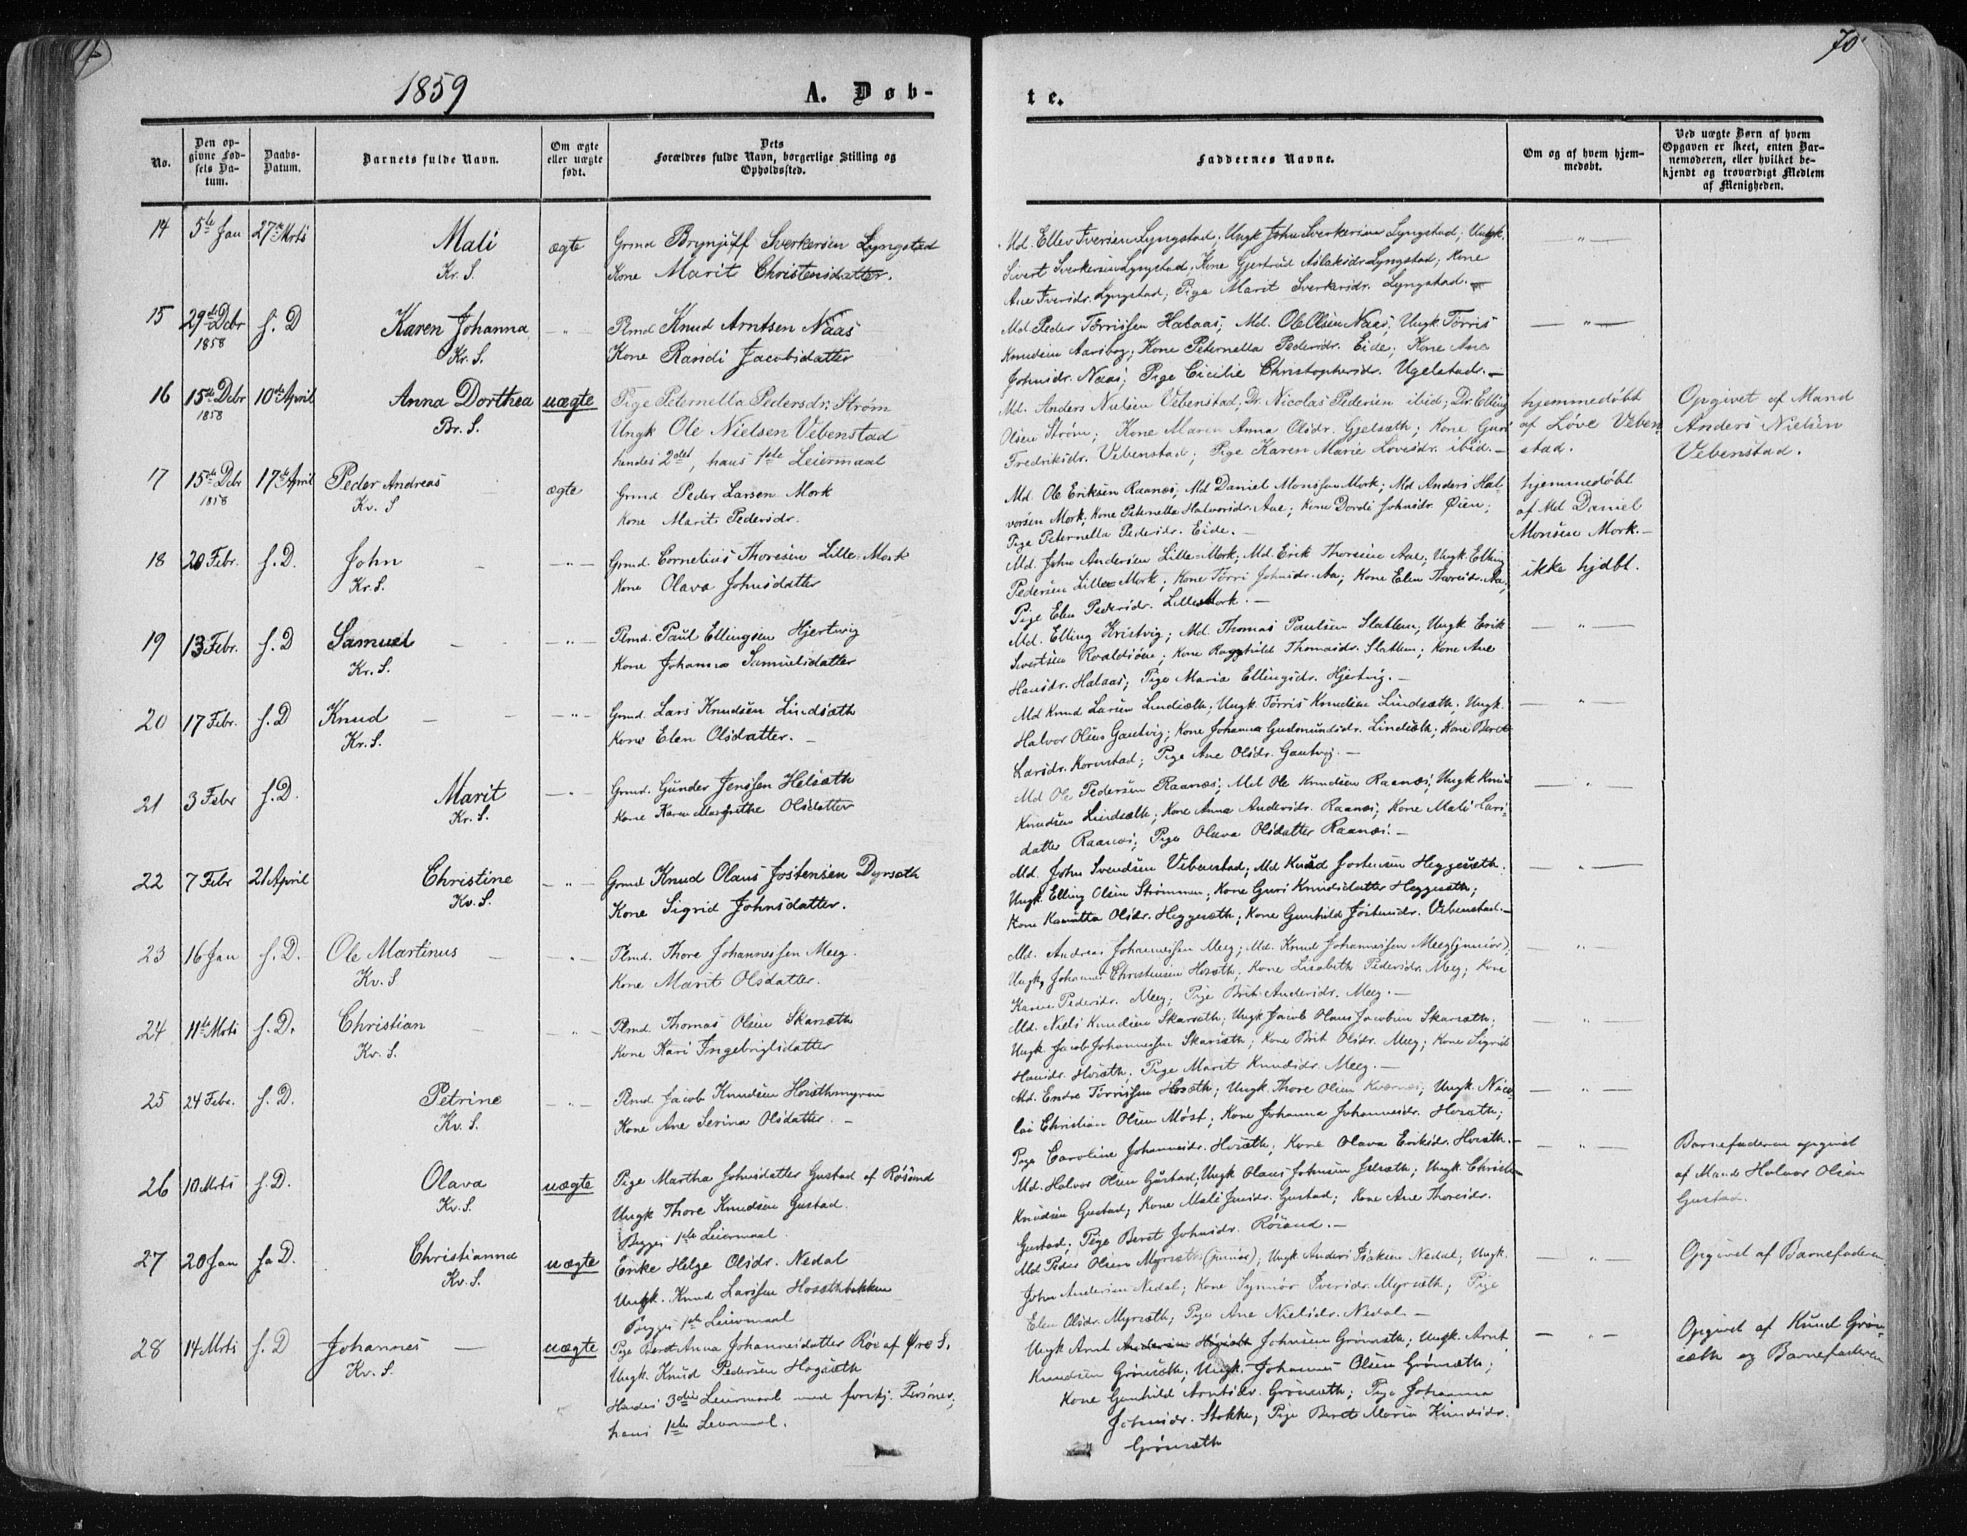 70.
1859
A. Døb-
te.
No.
Den op-
givne Fød-
sels Da-
tum.
Daabs-
Datum.
Barnets fulde Navn.
Om ægte
eller uægte
født.
Dets
Forældres fulde Navn, borgerlige Stilling og
Opholdssted.
Faddernes Navne.
Om og af hvem hjem-
medøbt.
Ved uægte Børn af hvem
Opgaven er skeet, enten Bar-
nemoderen, eller hvilket be-
kjendt og troværdigt Medlem
af Menigheden.
14 5te Jan 27de Mrts Mali ægte Grmd Brynjülf Sverkersen Lyngstad
Kr. S. Kone Marit Christensdatter.
Md. Ellev Iversen Lyngstad; Ungk John Sverkersen Lyngstad; Ungk.
Sivert Sverkersen Lyngstad; Kone Gjertrud Aslaksdr Lyngstad; Kone
Ane Iversdr. Lyngstad; Pige Marit Sverkersdr. Lyngstad.—
— " —
15 29de Dcbr f. D Karen Johanna — " — Plmd Knud Arntsen Naas
1858 Kr. S. Kone Randi Jacobsdatter
Md Peder Tørrissen Halaas; Md. Ole Olsen Naas; Ungk Tørris
Knudsen Aarsbog; Kone Peternella Pedersdr. Eide; Kone Ane
Johnsdr. Naas; Pige Cicilie Christophersdr. Ugelstad.—
— " —
16 15de Dcbr 10de April Anna Dorthea uægte Pige Peternella Pedersdr. Strøm
1858 Br. S. Ungk Ole Nielsen Vebenstad
hendes 2det, hans 1ste Leiermaal
Md. Anders Nielsen Vebenstad; Dr. Nicolas Pedersen ibid; Dr. Elling
Olsen Strøm; Kone Maren Anna Olsdr. Gjelsæth; Kone Guri
Fredriksdr. Vebenstad; Pige Karen Marie Løvesdr. ibid.—
hjemmedøbt
af Løve Veben
stad.
Opgivet af Mand
Anders Nielsen
Vebenstad.
17 15de Dcbr 17de April Peder Andreas ægte Grmd Peder Larsen Mork
1858 Kv. S Kone Marit Pedersdr.
Md. Ole Eriksen Raanæs; Md Daniel Monssen Mork; Md Anders Hal-
vorsen Mork; Kone Peternella Halvorsdr. Aae; Kone Dordi Johnsdr. Øien;
Pige Peternella Pedersdr. Eide.—
hjemmedøbt
af Md Daniel
Monsen Mork.—
18 20 Febr. f. D. John — " — Grmd. Cornelius Thoresen Lille-Mork
Kr. S. Kone Olava Johnsdatter
Md. John Andersen Lille-Mork; Md. Erik Thoresen Aae; Ungk. Elling
Pedersen Lille-Mork; Kone Tørri Johnsdr. Aa; Kone Elen Thoresdr. Aa;
Pige Elen Pedersdr. Lille Mork.—
ikke hjdbt.
19 13 Febr. f. D Samuel — " — Plmd. Paul Ellingsen Hjertvig
Kr. S. Kone Johanna Samuelsdatter
Md. Elling Kristvig; Md. Thomas Paulsen Slatlem; Ungk. Erik
Sivertsen Roaldsöen; Kone Ragnhild Thomasdr. Slatlem; Kone Ane
Hansdr. Halaas; Pige Maria Ellingsdr. Hjertvig.—
— " —
20 17 Febr. f. D Knud — " — Grmd. Lars Knudsen Lindsæth
Kr. S. Kone Elen Olsdatter.—
Md Knud Larsen Lindsæth; Ungk. Tørris Knudsen Lindsæth; Ungk.
Halvor Olsen Gautvig; Kone Johanna Gudmundsdr. Lindsæth; Kone Beret
Larsdr. Kornstad; Pige Ane Olsdr. Gautvig.—
— " —
21 3 Febr f. D. Marit — " — Grmd. Gunder Jenssen Helsæth
Kr. S. Kone Karen Margrethe Olsdatter
Md Ole Pedersen Raanæs; Md Ole Knudsen Raanæs; Ungk Knud
Knudsen Lindsæth; Kone Anna Andersdr. Raanæs; Kone Mali Lars-
datter Raanæs; Pige Olava Olsdatter Raanæs.—
— " —
22 7 Febr 21 April Christine — " — Grmd Knud Olaus Jostensen Dyrsæth
Kv. S. Kone Sigrid Johnsdatter.
Md. John Svendsen Vebenstad; Md Knud Jostensen Heggesæth.
Ungk. Elling Olsen Strømmen; Kone Guri Knudsdatter Heggesæth;
Kone Kanutta Olsdr. Heggesæth; Kone Gunhild Jostensdr. Vebenstad.—
— " —
23 16 Jan f. D. Ole Martinus — " — Plmd. Thore Johannessen Meeg.
Kv. S Kone Marit Olsdatter.
Md. Andreas Johannessen Meeg; Md. Knud Johannessen Meeg (junior);
Ungk. Johannes Christensen Hosæth; Kone Lisabeth Pedersdr. Meeg; Kone
Karen Pedersdr. Meeg; Pige Brit Andersdr. Meeg.—
— " —
24 11te Mrts f. D. Christian — " — Plmd. Thomas Olsen Skarsæth
Kv. S. Kone Kari Ingebrigtsdatter
Md. Niels Knudsen Skarsæth; Ungk Jacob Olaus Jacobsen Skarsæth;
Ungk. Jacob Johannessen Skarsæth; Kone Brit Olsdr. Meeg; Kone Sigrid
Hansdr. Hosæth; Pige Marit Knudsdr. Meeg.—
— " —
25 24 Febr. f. D. Petrine — " — Plmd Jacob Knudsen Hosæthmyren
Kv. S. Kone Ane Serina Olsdatter.—
Md. Endre Tørrissen Hosæth; Ungk. Thore Olsen Kværnes; Ungk. Nico-
lai Christian Olsen Møst; Kone Johanna Johannesdr. Hosæth;
Pige Caroline Johannesdr. Hosæth; Kone Olava Eriksdr. Hosæth.—
— " —
26 10 Mrts f. D. Olava uægte Pige Martha Johnsdatter Gustad af Røsand
Kv. S. Ungk Thore Knudsen Gustad.
Begges 1ste Leiermaal.
Md. Halvor Olsen Gustad; Ungk Olaus Johnsen Julsæth; Ungk. Christen
Knudsen Gustad; Kone Mali Jensdr. Gustad; Kone Ane Thoresdr.
Gustad; Pige Beret Johnsdr. Røsand.—
— " —
Barnefaderen opgivet
af Mand Halvor Olsen
Gustad.
27 20 Jan f. D. Christianna uægte Enke Helge Olsdr. Nedal
Kv. S. Ungk. Knud Larssen Hosæthbakken
Begges 1ste Leiermaal
Md Peder Olsen Myrsæth (junior); Ungk. Anders Isaksen Nedal; Ungk.
John Andersen Nedal; Kone Synnør Iversdr. Myrsæth; Pige
Elen Olsdr. Myrsæth; Pige Ane Nielsdr. Nedal—
— " —
Opgivet af Barnefaderen
28 14 Mrts f. D Johannes uægte Pige Beret Anna Johannesdatter Røe af Øre S.
Kr. S. Ungk. Knud Pedersen Hogsæth
Hendes 3die Leiermaal med forskj. Personer;
hans 1ste Leiermaal.
Ungk Arnt Johnsen Grønsæth; Ungk. Arnt
Knudsen Grønsæth; Ungk. Johannes Olsen Grønsæth;
Kone Gunhild Arntsdr. Grønsæth; Pige Johanna
Johnsdr. Stokke; Pige Beret Maria Knudsdr.
Grønsæth
— " —
Opgivet af Knud Grøn-
sæth og Barnefaderen